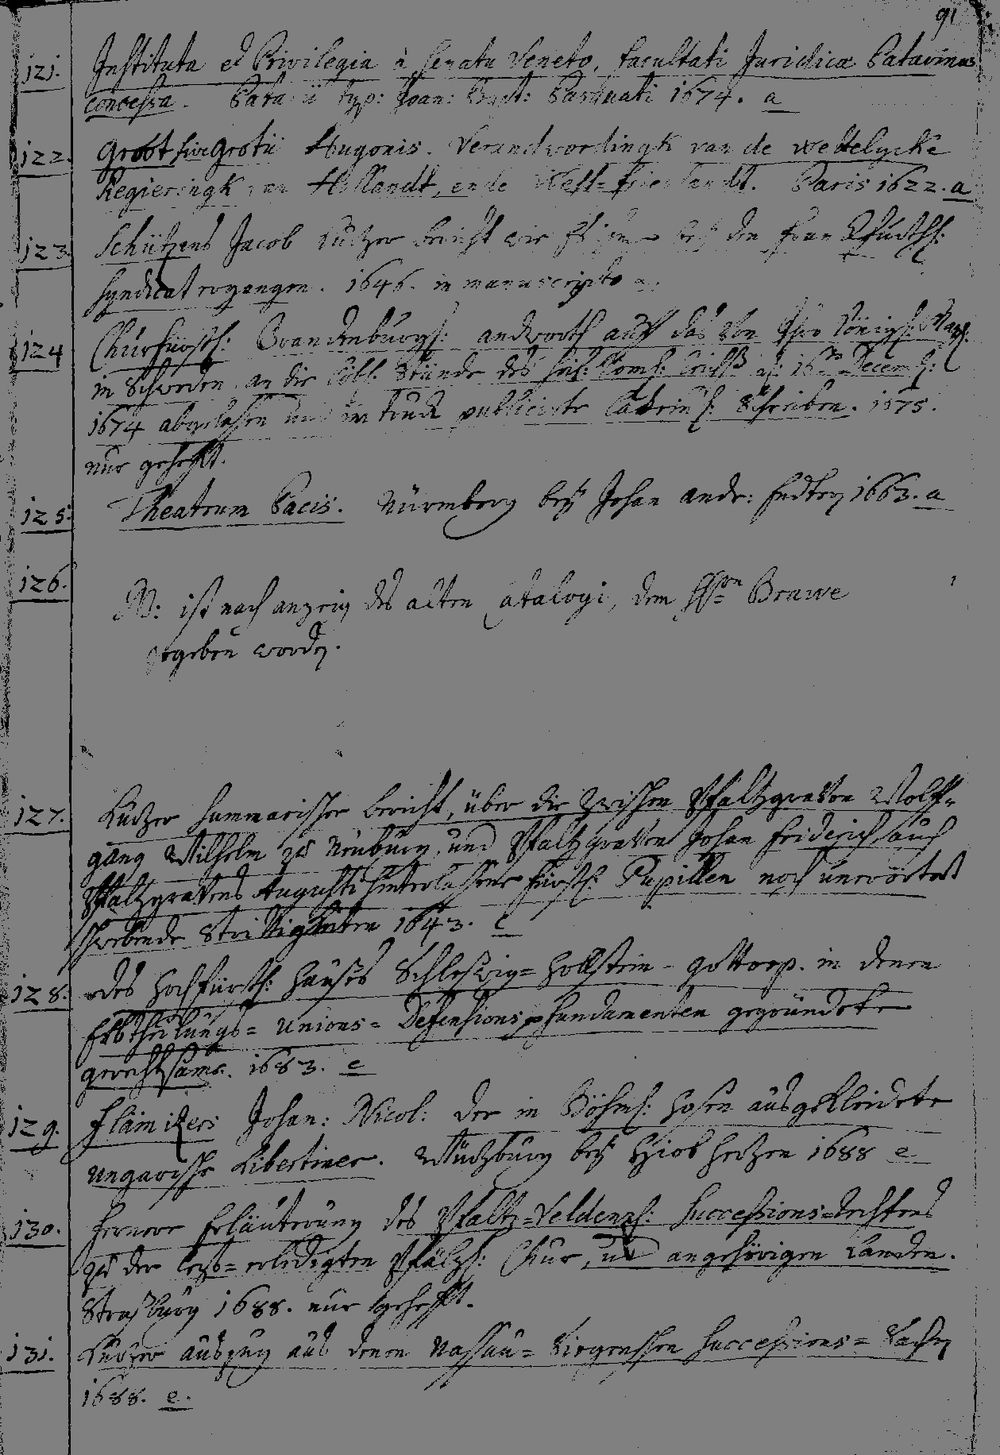 91
121. Instituta et Privilegia à Senatu Veneto, facultati Juridicæ Patavinæ
concessa. Patavii typ: Joan: Bapt: Pasquati 1674. a
122. Groot sive Grotii Hugonis. Verandwordingh van de wettelycke
Regieringh van Hollandt, ende West=frieslandt. Paris 1622. a
123. Schützens Jacob kurtzer bericht wie Es den
Syndicat ergangen. 1646. in manuscripto a.
124. Churfürstl: Brandenburgl: andwortt auff das von Ihro Königl: Mayl:
in Schweden an die löbl: Stände des 16 Decemb:
1674 abgelassen und im truck publicirte Lateinl: Schreiben. 1675.
nur gehefft.
125. Theatrum Pacis. Nürmberg bey Johan Andr: Endter 1663. a
126. NB: ist nach anzeig des alten Catalogi, dem Hrn Beuwe
gegeben worden.
127. Kurzer Summarischer bericht, über die zwischen Pfaltzgraven Wolff=
gang Wilhelm zu Neuburg, und Pfaltzgraven Johan Friderich auch
Pfaltzgravens Augusti hinterlassene fürstl: Pupillen noch unerörtert
schwebende Strittigkeiten 1643. e
128. des Hochfürstl: Hauses Schleszwig=Hollstein=Gottorp. in denen
Erbtheilungs= Unions= Defensions fundamenten gegründete
gerechtsame. 1683. e
129. Flämitzer Johan: Nicol: der in Böhml: Hosen ausgekleidete
Ungarische Libertiner. Würtzburg bey Hiob Hertzen 1688 e
130. Fernere Erläuterung des Pfaltz=Veldenzl: Successions=rechtens
zu der letzt=erledigten Pfältzl: Chur, und angehörigen Landen.
Straszburg 1688. nur gehefft.
131. Kurzer auszug aus denen Nassau=Siegenschen Successions=Sachen
1688. e.